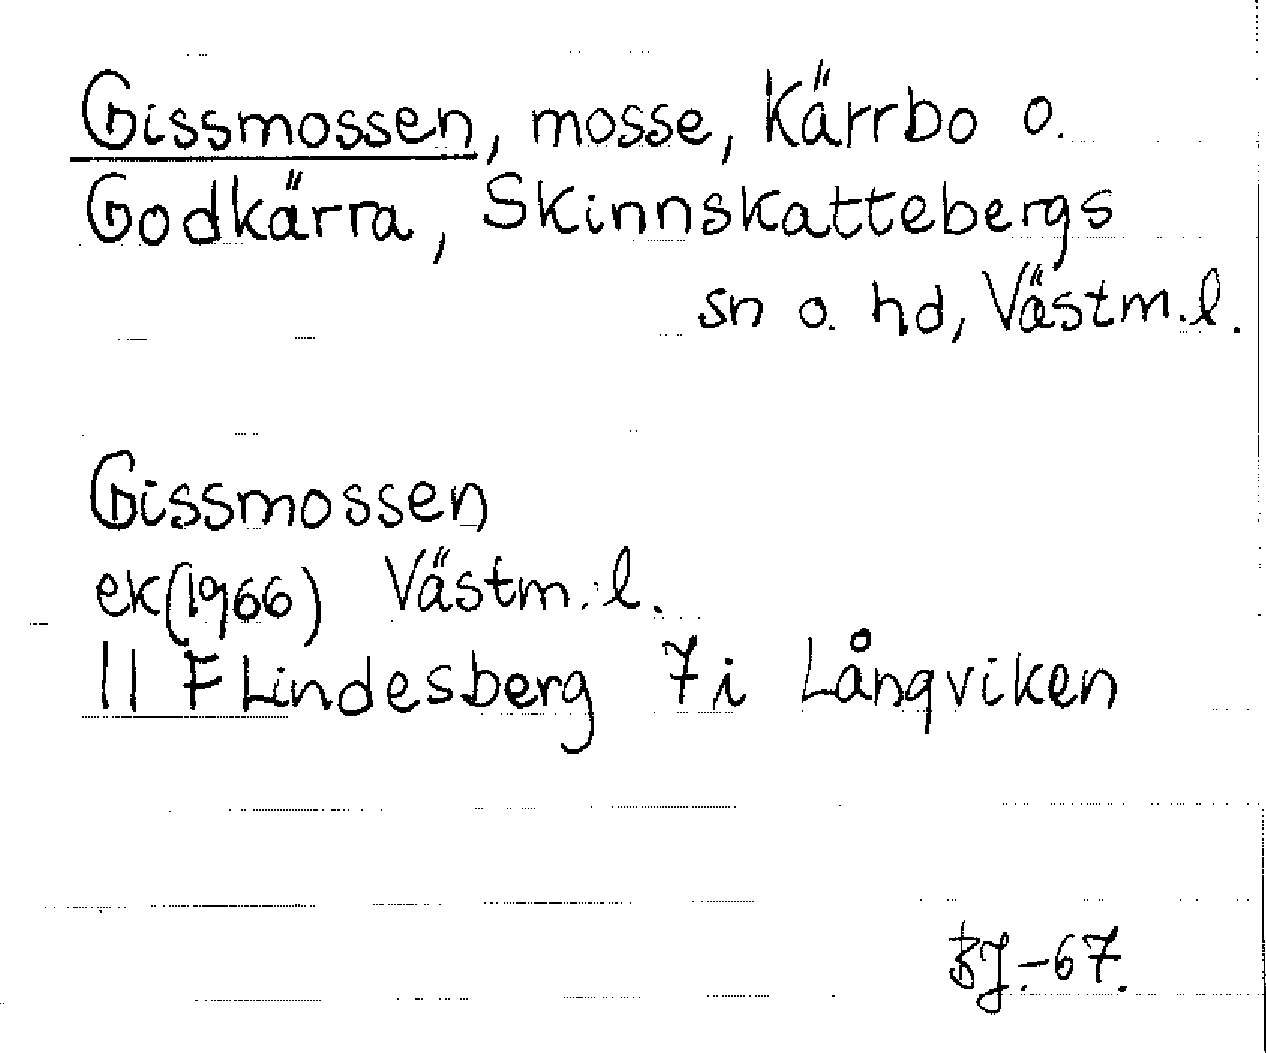 Gissmossen, mosse, Kärrbo o.
Godkärra, Skinnskattebergs
sn o. hd, Västm.l.
Gissmossen
ek(1966) Västm.l.
11 F Lindesberg 7i Långviken
BJ.-67.